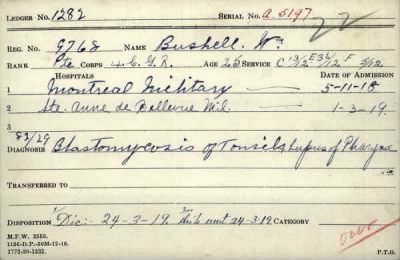 LEDGER No. 1282 SERIAL No. A.5197 22
REG. No. 9768 NAME Bushell. Wm
RANK Pte CORPS 4.C.G.R. AGE 25 SERVICE C 13/12 E 3/12 F 5/12
HOSPITALS DATE OF ADMISSION
1 Montreal Military 5-11-18
2 Ste. Anne de Bellevue Mil. 1-3-19.
3 82/29
DIAGNOSIS Blastomycosis of Tonsils Lupus of Pharynx
TRANSFERRED TO
DISPOSITION Dis:- 24-3-19. unit 24-3-19 CATEGORY
M.F.W. 2553.
1125-D.P.-50M-12-18.
1772-39-1232.
P.T.O.